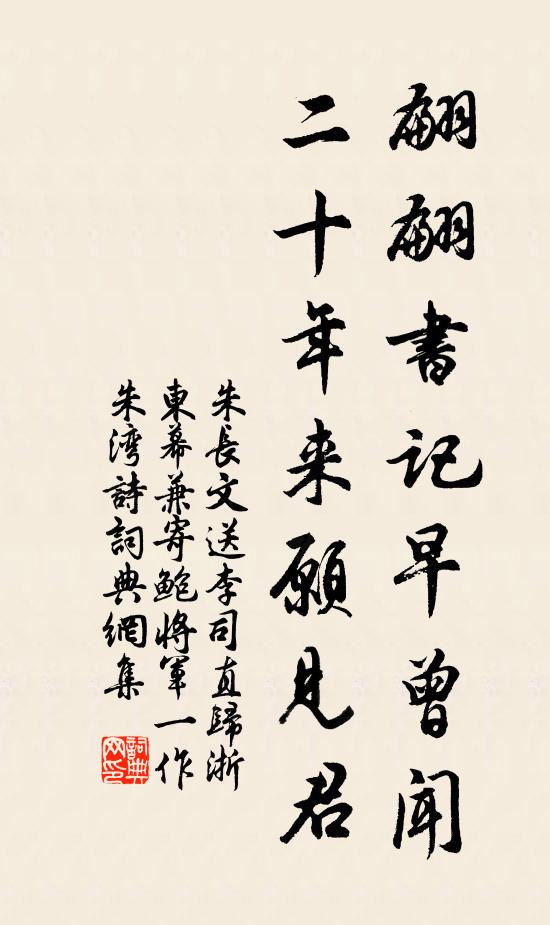 翩翩書記早曾聞
二十年来願見君
朱長文送李司直歸浙
東幕兼寄鮑將軍一作
朱灣詩詞典網集
詞典
网印